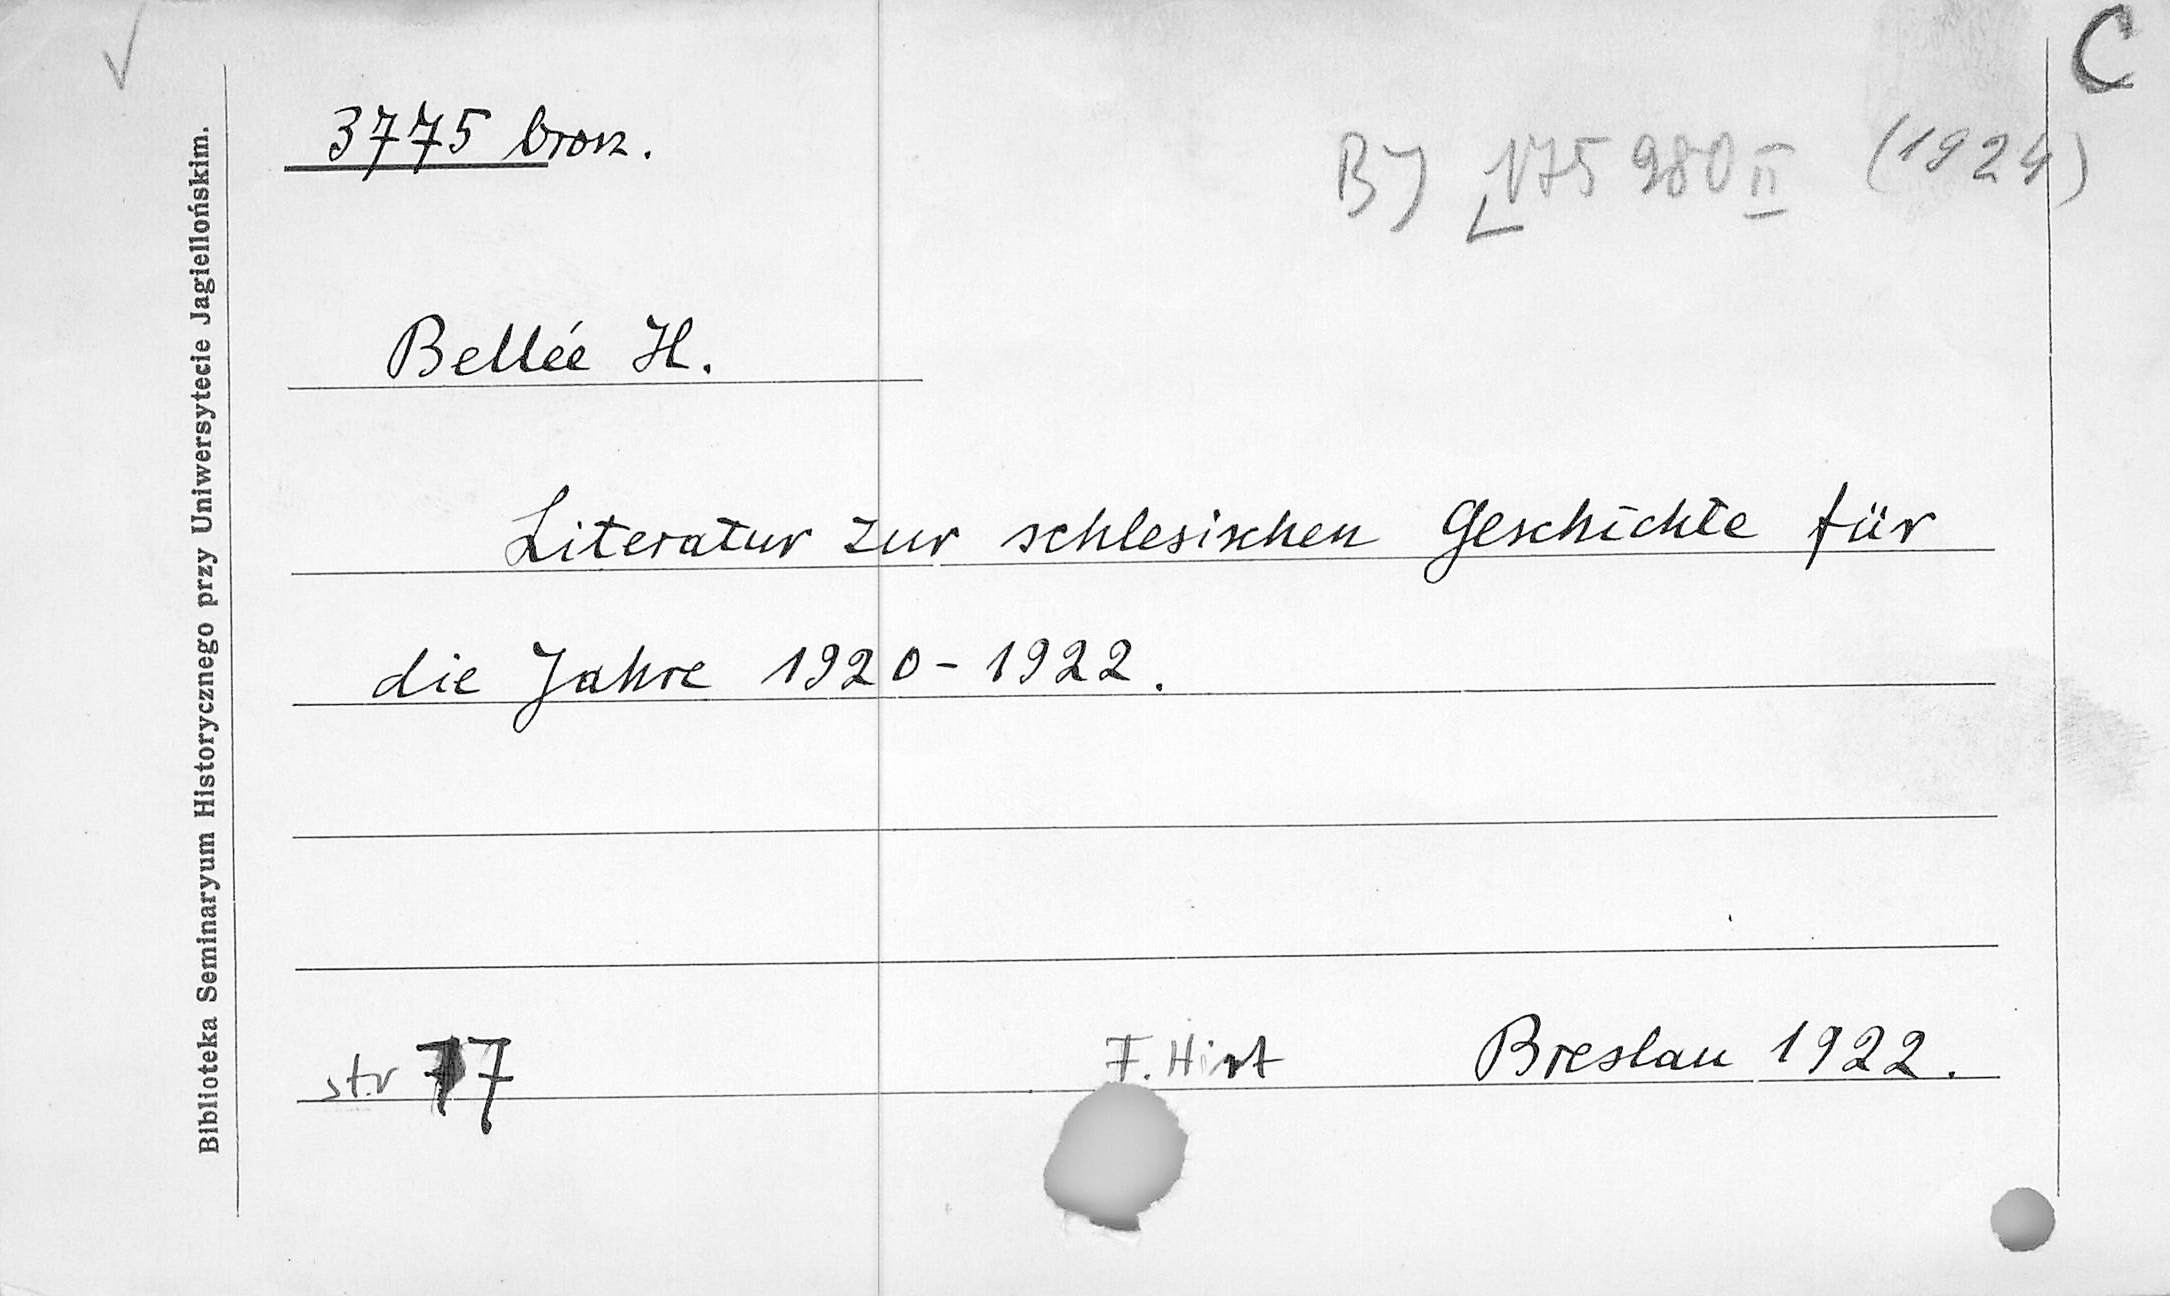 C
3775 brosz.
BJ 175 980 II (1924)
Bellée H.
Literatur zur schlesischen Geschichte für
die Jahre 1920-1922.
str 77
F. Hirt
Breslau 1922.
Biblioteka Seminaryum Historycznego przy Uniwersytecie Jagiellońskim.